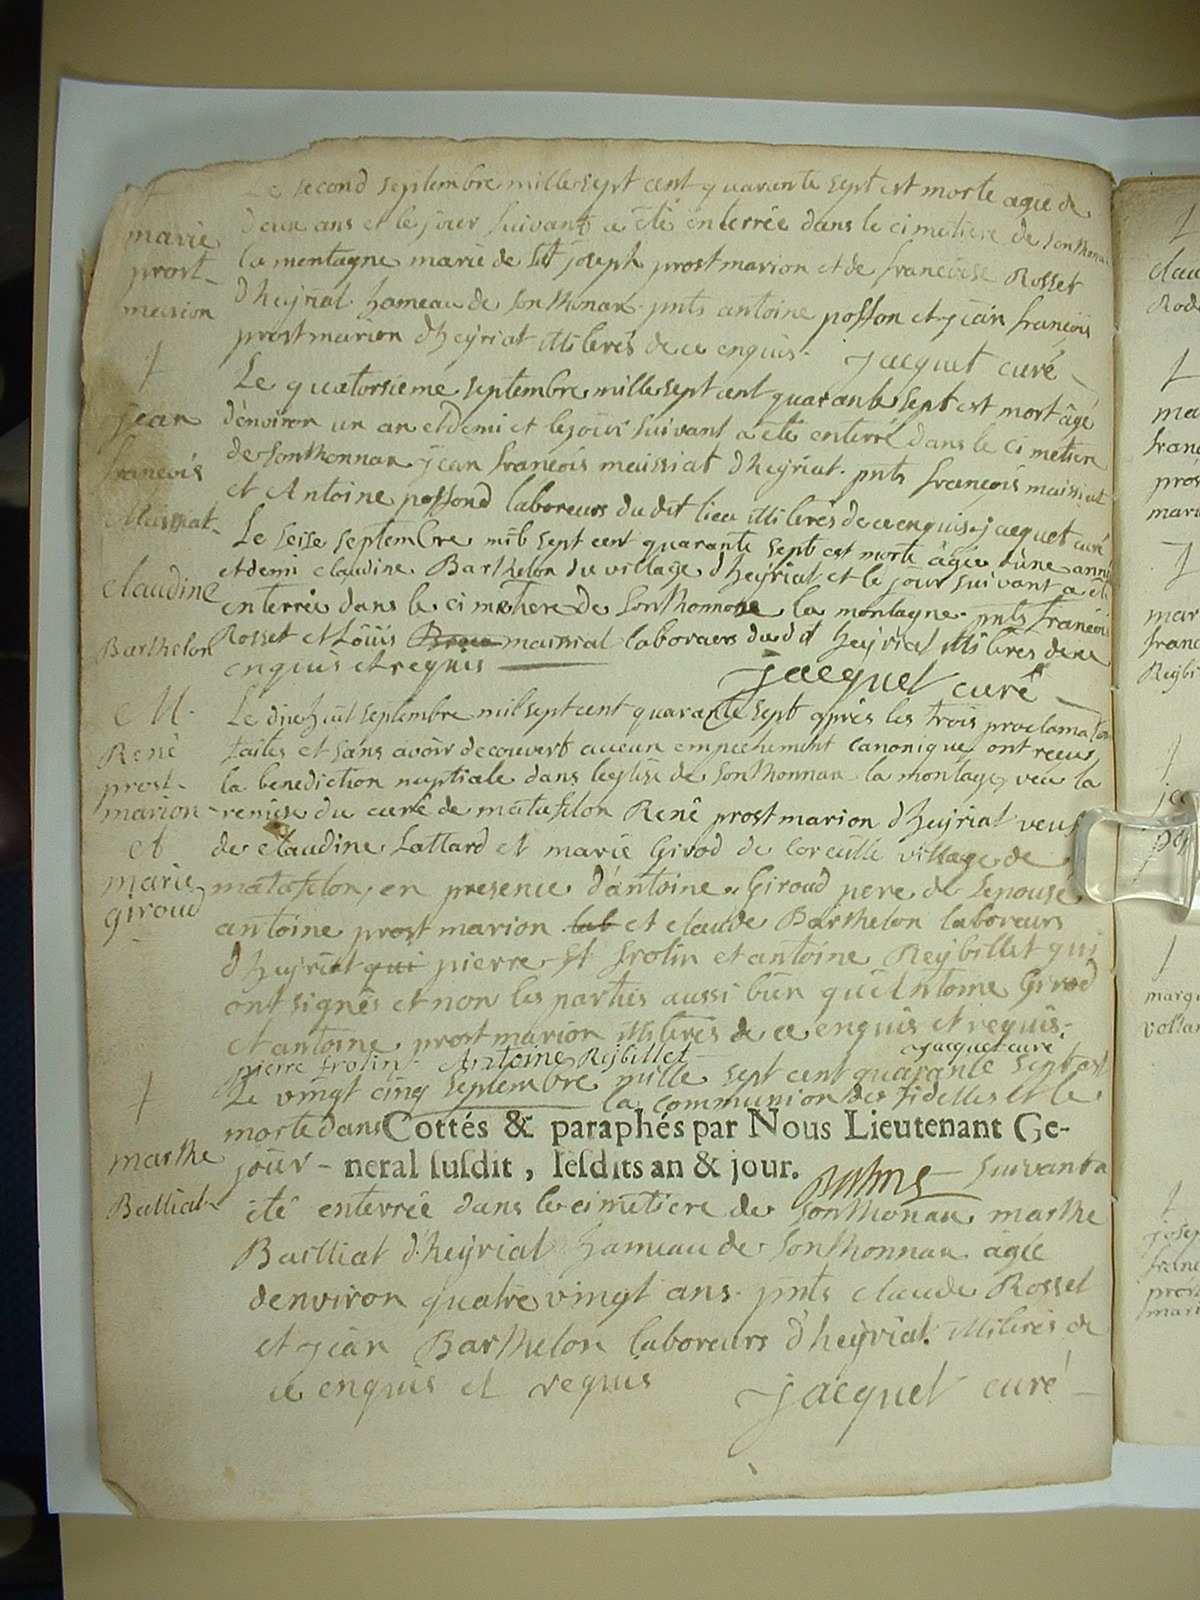 Le second septembre mille sept cent quarante sept est morte agée de
deux ans et le jour suivant a été enterrée dans le cimetiere de Sonthonax
la montagne marie de St joseph prost marion et de francoise Rosset
d'heÿriat hameau de Sonthonax pnts antoine posson et jean francois
prost marion d'heÿriat illiterés de ce enquis. jacquet curé
Le quatorsieme septembre mille sept cent quarante sept est mort agé
d'environ un an et demi et le jour suivant a eté enterré dans le cimetiere
de Sonthonnax jean francois maissiat d'heyriat. pnts francois maissiat
et Antoine possond laboreurs du dit lieu illiterés de ce enquis jacquet curé
Le seize septembre mil sept cent quarante sept est morte agée d'une année
et demi claudine Barthelon du village d'heÿriat et le jour suivant a eté
enterrée dans le cimethere de Sonthonnax la montagne pnts francois
Rosset et Loüis maissiat laboreurs du dit heÿriat illiteres de ce
enquis et requis
jacquet curé
Le dixhuit septembre mil sept cent quarante sept après les trois proclamations
faites et sans avoir decouvert aucun empechement canonique ont receu
la benediction nuptiale dans leglise de Sonthonnax la montagne veu la
remise du curé de matafelon René prost marion d'heyriat veuf
de claudine Lattard et marie Girod de Corcelle village de
matafelon, en presence d'antoine Giroud pere de l'epouse
antoine prost marion lab et claude Barthelon laboreurs
d'heyriat qui pierre frolin et antoine Reybillet qui
ont signés et non les parties aussi bien que Antoine Girod
et antoine prost marion illiteres de ce enquis et requis
pierre frolin Antoine Reibillet jacquet curé
Le vingt cinq septembre mille sept cent quarante sept est
morte dans la communion des fidelles et le
Cottés & paraphés par Nous Lieutenant Ge-
neral susdit, lesdits an & jour.
jour suivant a
été enterrée dans le cimetiere de Sonthonax marthe
Bailliat d'heÿriat hameau de Sonthonnax agée
denviron quatre vingt ans. pnts claude Rosset
et jean Barthelon laboreurs d'heÿriat illiterés de
ce enquis et requis jacquet curé
marie
prost
marion
jean
francois
Maissiat
claudine
Barthelon
M.
René
prost
marion
et
marie
giroud
marthe
Bailliat